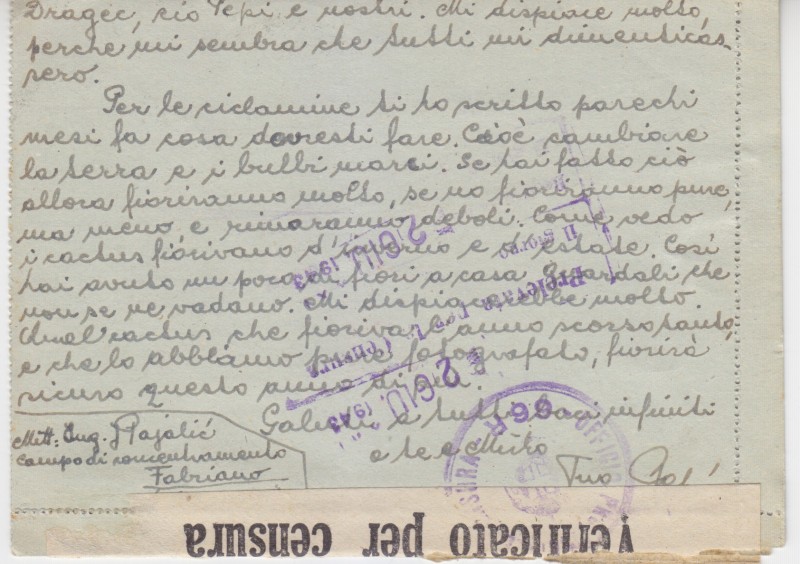 Dragec, zio Pepi e nostri. Mi dispiace molto,
perche mi sembra che tutti mi dimenticas-
sero.
Per le ciclamine ti ho scritto parechi
mesi fa cosa dovresti fare. Cioè cambiare
la terra e i bulbi marci. Se hai fatto ciò
allora fioriranno molto, se no fioriranno pure,
ma meno, e rimaranno deboli. Come vedo
i cactus fiorivano d'inverno e d'estate. Così
hai avuto un poco di fiori a casa. Guardali che
non se ne vadano. Mi dispiacerebbe molto.
Quel cactus che fioriva l'anno scorso tanto,
e che lo abbiamo pure fotografato, fiorirà
sicuro questo anno di più.
Saluti a tutti, baci infiniti
a te e Mirko
Tuo
Mitt: Eug.
campo di concentramento
Fabriano
2 GIU. 1943
Prelevata per la Censura
Il Signo
2 GIU. 1943
66 R
UFFICIO
CENSURA
Verificato per censura